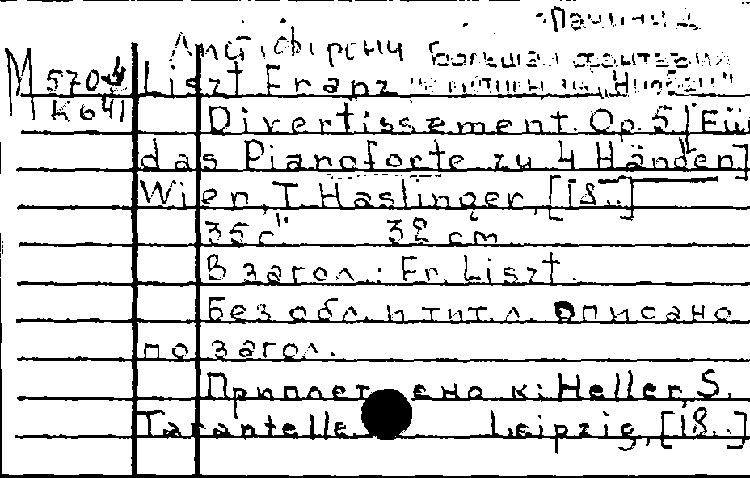 Пачини
Лист, Ференц Большая фантазия
M 5704 Liszt Franz на мотивы из "Ниобеи"
K641 Divertissement. Op. 5 [Für
das Pianoforte zu 4 Händen]
Wien, T. Haslinger, [18..]
35 с. 32 cm
В загол.: Fr. Liszt.
Без обл. и тит. л. Описано
по загол.
Приплетено к: Heller, S.
Tarantelle. Leipzig, [18..]